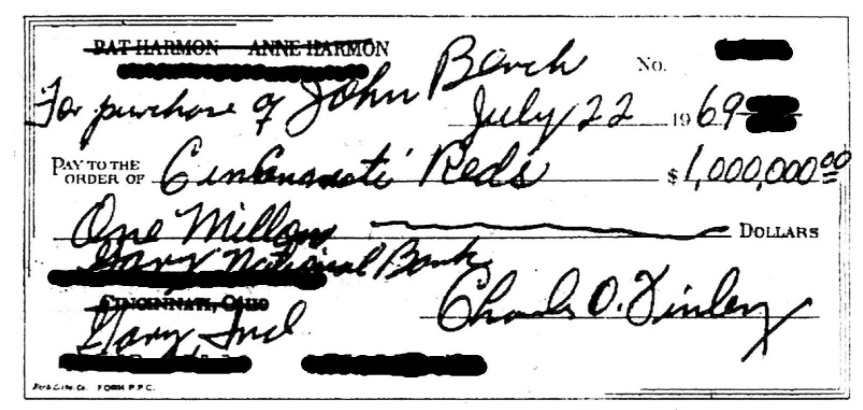 PAT HARMON ANNE HARMON
No.
For purchase of John Bench
July 22 1969
PAY TO THE ORDER OF Cincinnati Reds $1,000,000.00
One Millon DOLLARS
Gary National Bank
CINCINNATI, OHIO
Gary Ind
Charles O. Finley
FORM P.P.C.